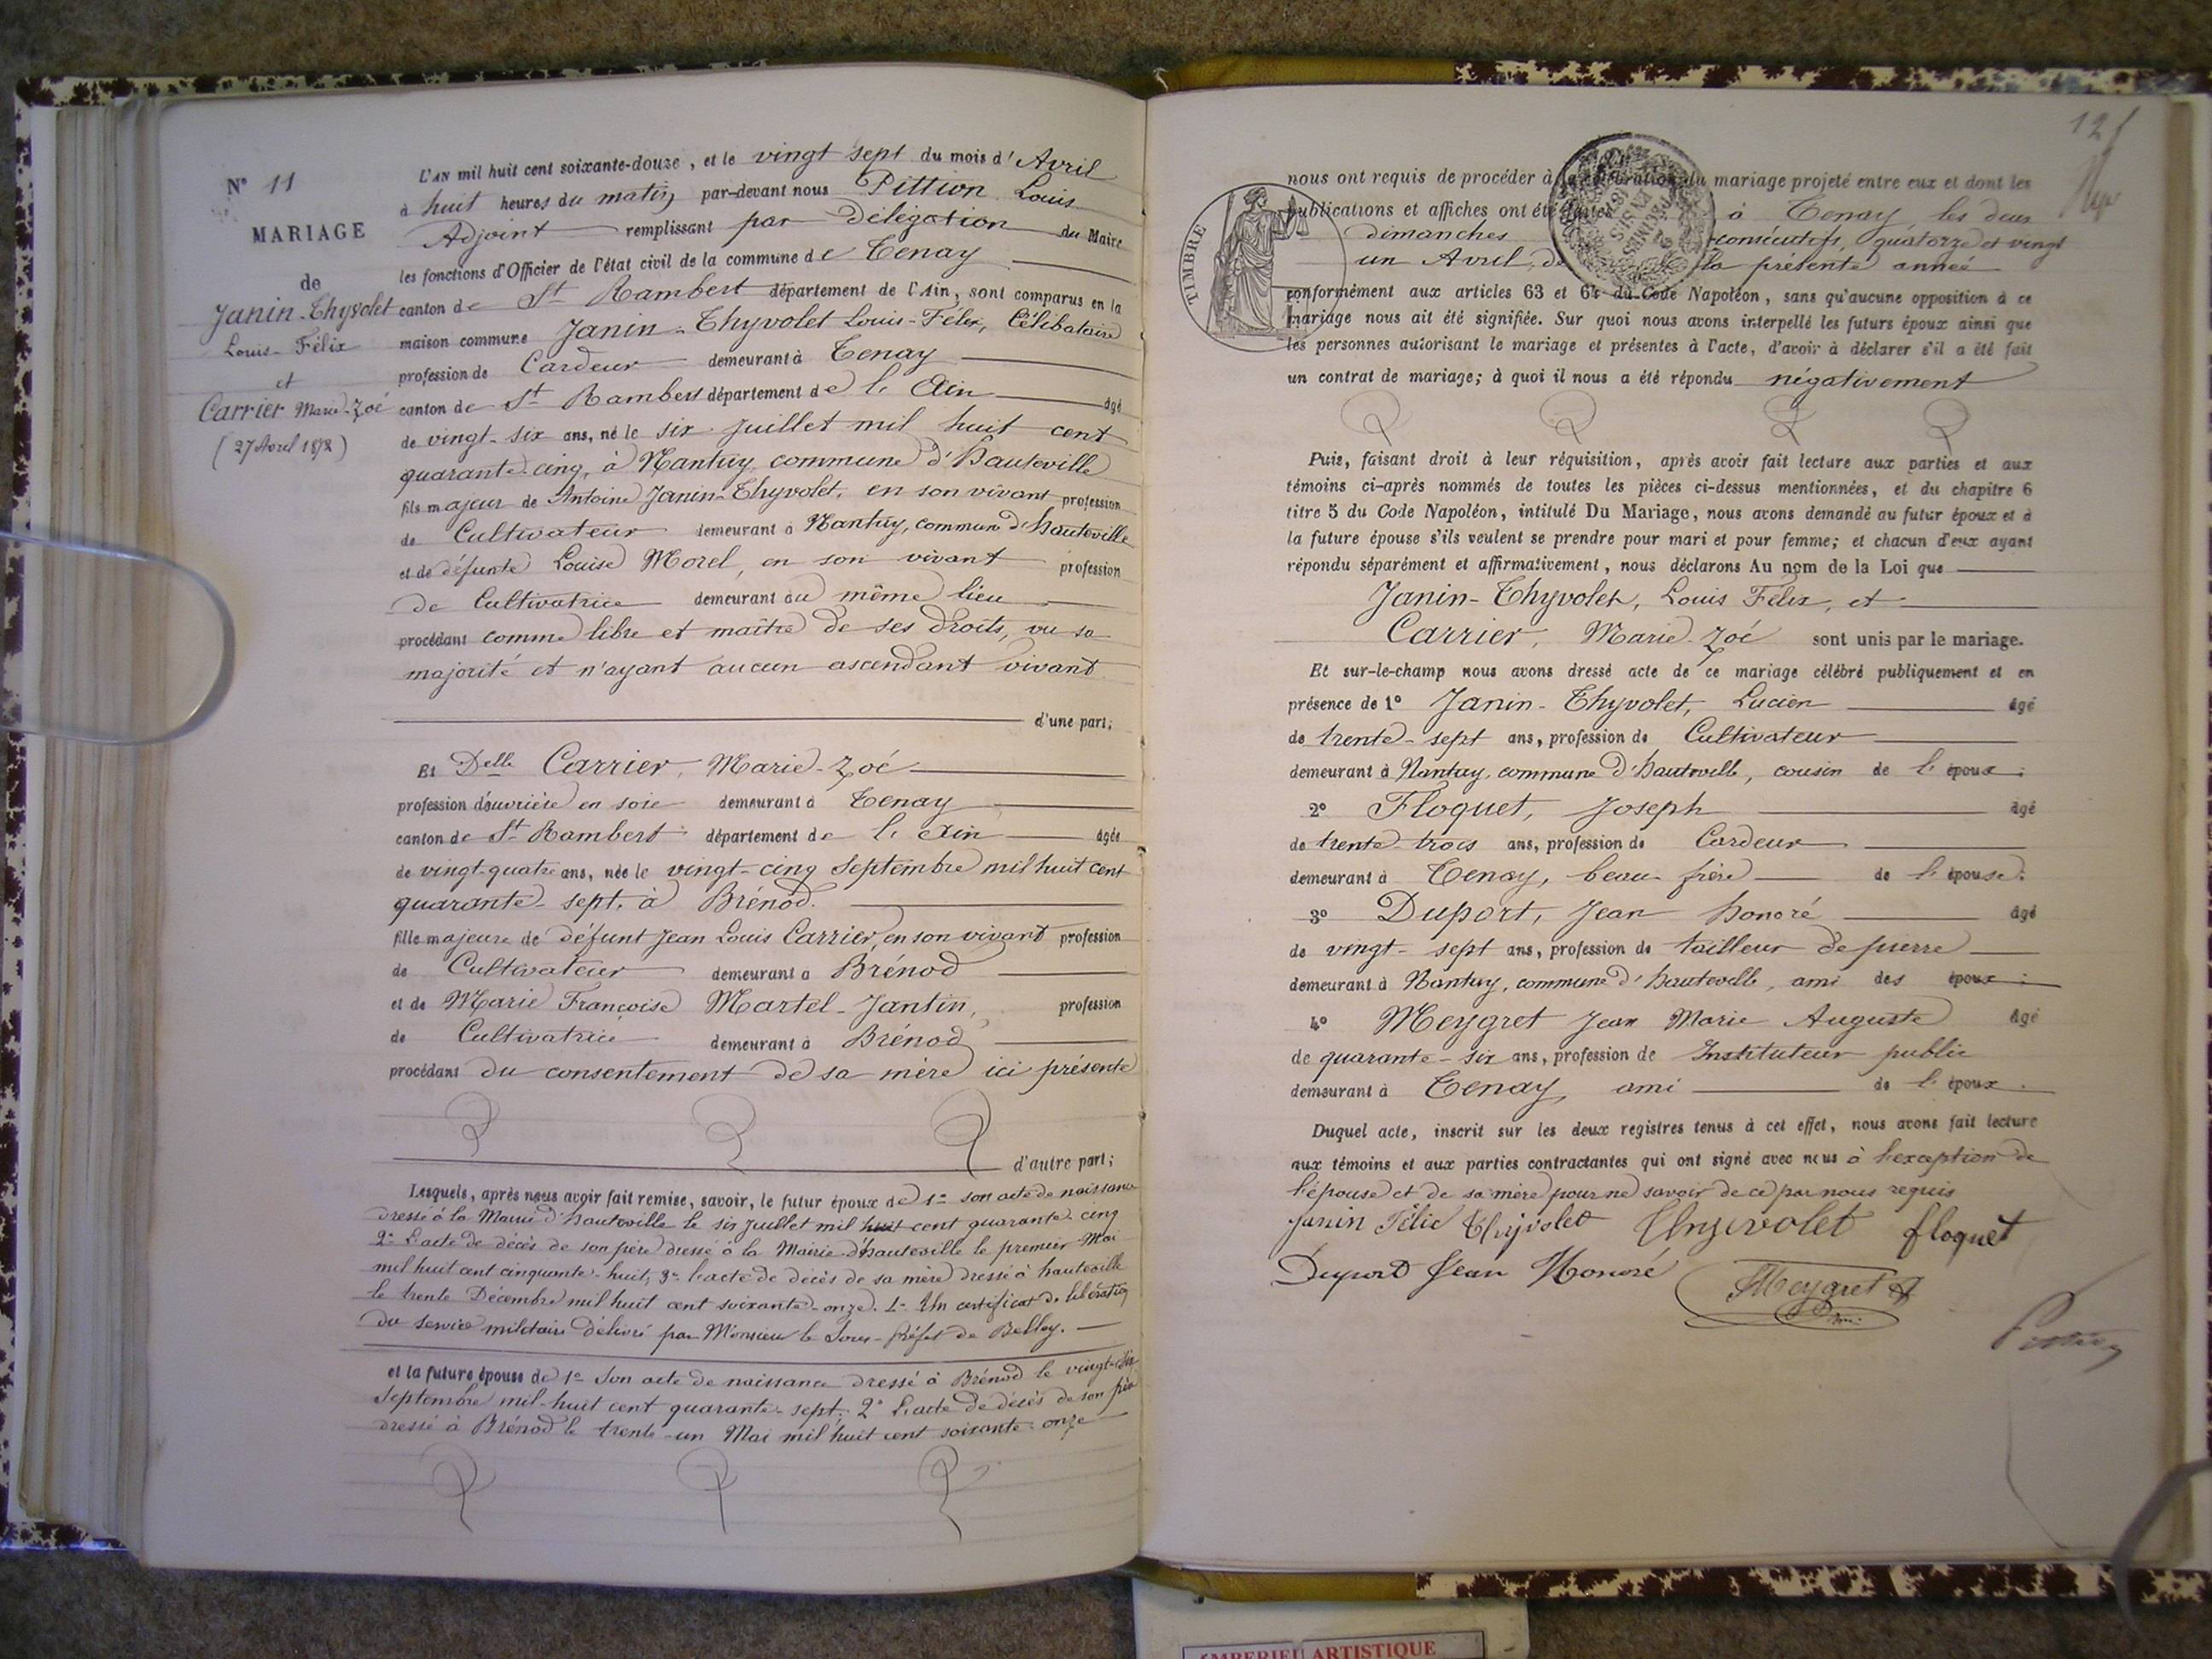 N° 11
MARIAGE
de
Janin-Thyvolet
Louis-Félix
et
Carrier Marie-Zoé
(27 Avril 1872)
L'AN mil huit cent soixante-douze, et le vingt sept du mois d'Avril
à huit heures du matin par-devant nous Pittion Louis
Adjoint remplissant par délégation du Maire
les fonctions d'Officier de l'état civil de la commune de Tenay
canton de St Rambert département de l'Ain, sont comparus en la
maison commune Janin-Thyvolet Louis-Félix, Célibataire
profession de Cardeur demeurant à Tenay
canton de St Rambert département de l'Ain âgé
de vingt-six ans, né le six Juillet mil huit cent
quarante-cinq, à Nantuy, commune d'hauteville
fils majeur de Antoine Janin-Thyvolet, en son vivant profession
de Cultivateur demeurant à Nantuy, commune d'hauteville
et de défunte Louise Morel, en son vivant profession
de Cultivatrice demeurant au même lieu
procédant comme libre et maître de ses droits, vu sa
majorité et n'ayant aucun ascendant vivant
d'une part;
Et Delle Carrier, Marie-Zoé
profession d'ouvrière en soie demeurant à Tenay
canton de St Rambert département de l'Ain âgée
de vingt-quatre ans, née le vingt-cinq Septembre mil huit cent
quarante-sept, à Brénod.
fille majeure de défunt Jean Louis Carrier, en son vivant profession
de Cultivateur demeurant à Brénod
et de Marie Françoise Martel-Jantin, profession
de Cultivatrice demeurant à Brénod
procédant du consentement de sa mère ici présente
d'autre part;
Lesquels, après nous avoir fait remise, savoir, le futur époux de 1° son acte de naissance
dressé à la Mairie d'hauteville le six Juillet mil huit cent quarante-cinq
2° L'acte de décès de son père dressé à la Mairie d'hauteville le premier Mai
mil huit cent cinquante-huit; 3° l'acte de décès de sa mère dressé à hauteville
le trente Décembre mil huit cent soixante-onze. 4° Un certificat de libération
du service militaire délivré par Monsieur le Sous-Préfet de Belley.
et la future épouse de 1° Son acte de naissance dressé à Brénod le vingt-six
Septembre mil-huit cent quarante-sept; 2° L'acte de décès de son père
dressé à Brénod le trente-un Mai mil huit cent soixante-onze
121
TIMBRE
nous ont requis de procéder à la célébration du mariage projeté entre eux et dont les
publications et affiches ont été faites à Tenay les deux
dimanches consécutifs, quatorze et vingt
un Avril, de la présente année
conformément aux articles 63 et 64 du Code Napoléon, sans qu'aucune opposition à ce
mariage nous ait été signifiée. Sur quoi nous avons interpellé les futurs époux ainsi que
les personnes autorisant le mariage et présentes à l'acte, d'avoir à déclarer s'il a été fait
un contrat de mariage; à quoi il nous a été répondu négativement
Puis, faisant droit à leur réquisition, après avoir fait lecture aux parties et aux
témoins ci-après nommés de toutes les pièces ci-dessus mentionnées, et du chapitre 6
titre 5 du Code Napoléon, intitulé Du Mariage, nous avons demandé au futur époux et à
la future épouse s'ils veulent se prendre pour mari et pour femme; et chacun d'eux ayant
répondu séparément et affirmativement, nous déclarons Au nom de la Loi que
Janin-Thyvolet, Louis Félix, et
Carrier, Marie-Zoé sont unis par le mariage.
Et sur-le-champ nous avons dressé acte de ce mariage célébré publiquement et en
présence de 1° Janin-Thyvolet, Lucien âgé
de trente-sept ans, profession de Cultivateur
demeurant à Nantuy, commune d'hauteville, cousin de l'époux;
2° Floquet, Joseph âgé
de trente-trois ans, profession de Cardeur
demeurant à Tenay, beau-frère de l'épouse.
3° Duport, Jean honoré âgé
de vingt-sept ans, profession de tailleur de pierre
demeurant à Nantuy, commune d'hauteville, ami des époux;
4° Meygret Jean Marie Auguste âgé
de quarante-six ans, profession de Instituteur public
demeurant à Tenay, ami de l'époux.
Duquel acte, inscrit sur les deux registres tenus à cet effet, nous avons fait lecture
aux témoins et aux parties contractantes qui ont signé avec nous à l'exception de
l'épouse et de sa mère pour ne savoir de ce par nous requis
Janin Félic Thyvolet Thyvolet floquet
Duport Jean Honoré Meygret
Pittion
AMBERIEU ARTISTIQUE